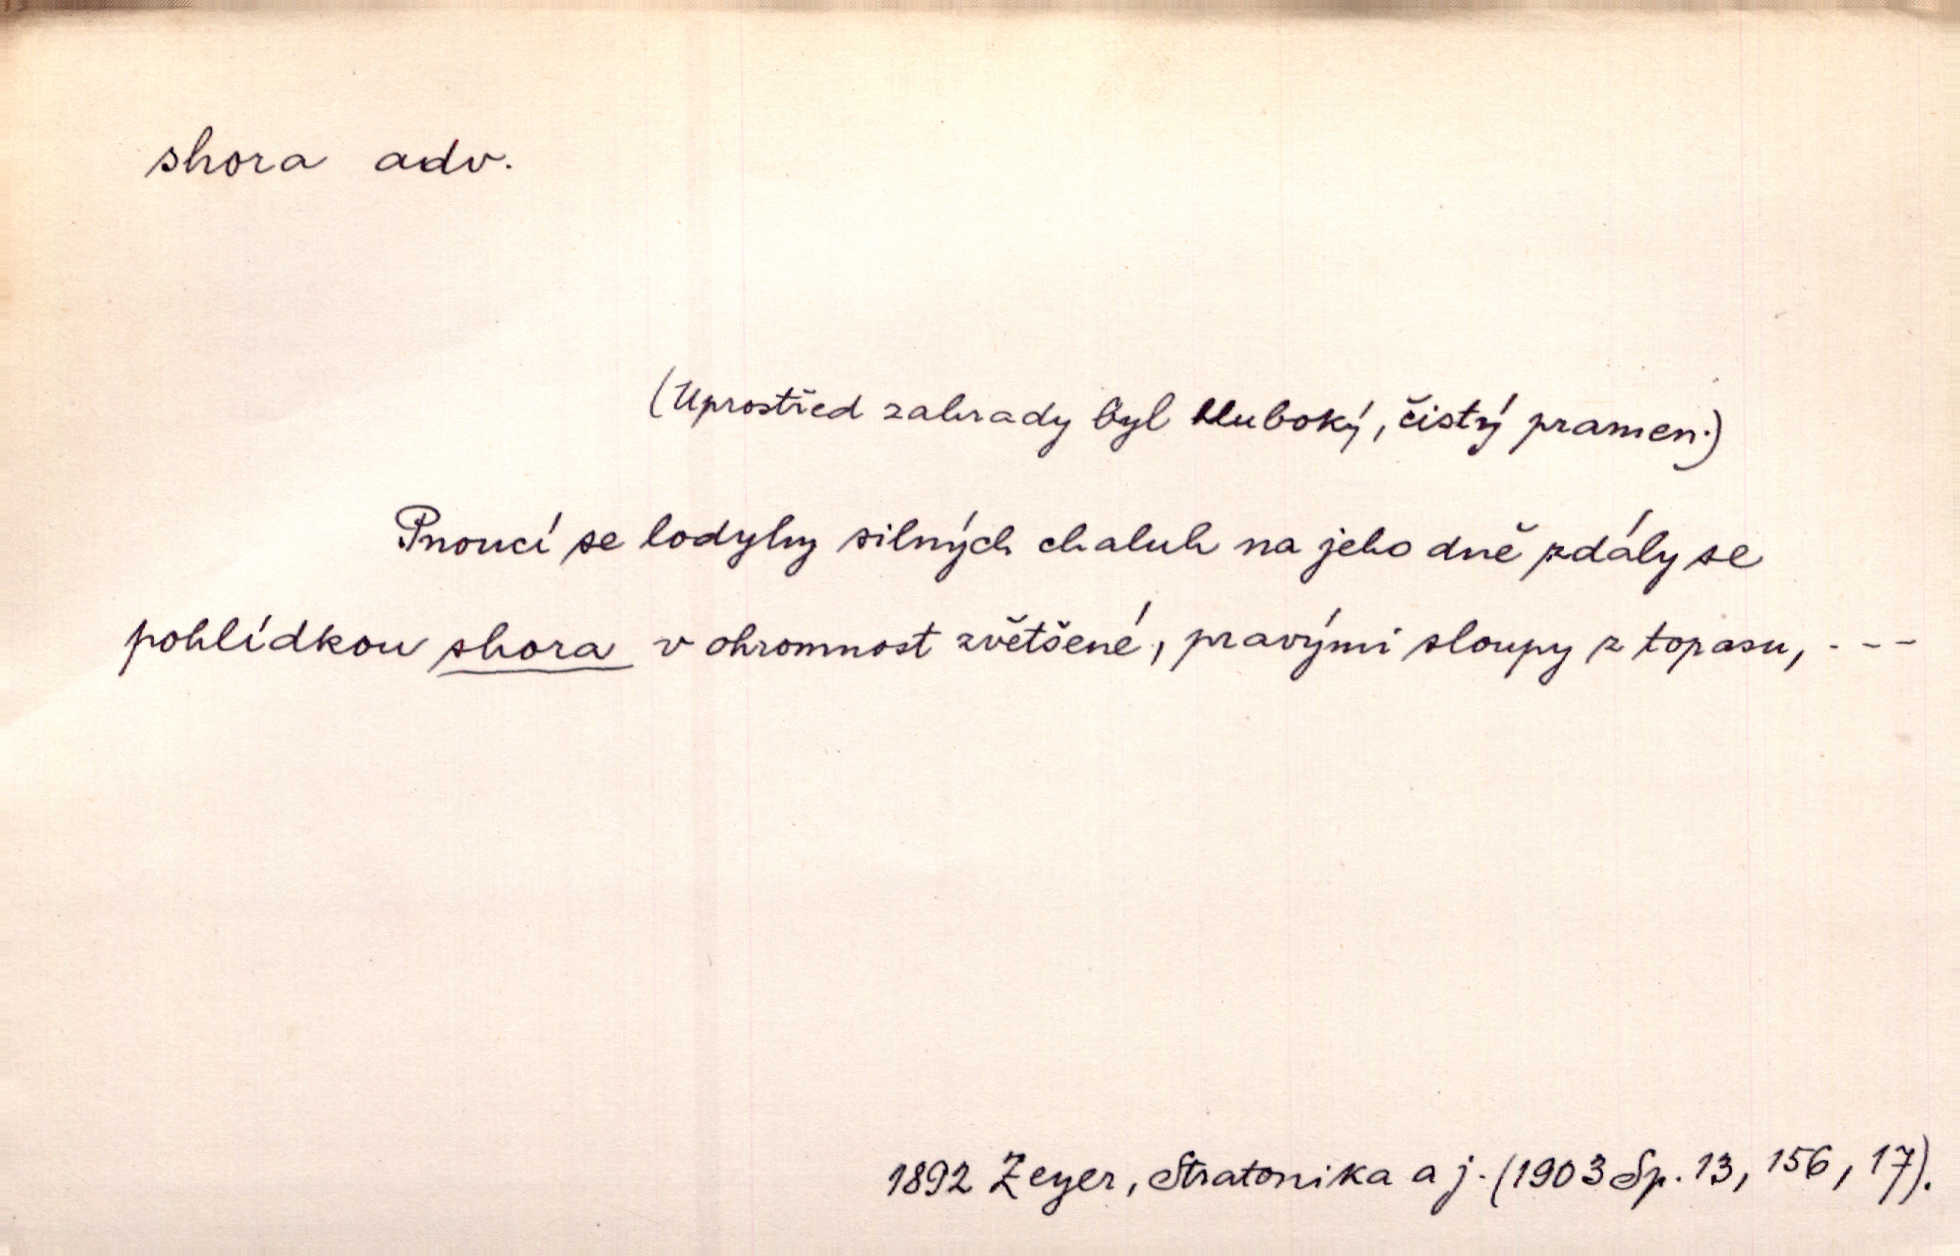 shora adv.
(Uprostřed zahrady byl hluboký, čistý pramen.)
Pnoucí se lodyhy silných chaluh na jeho dně zdály se
pohlídkou shora v ohromnost zvětšené, pravými sloupy z topasu, - - -
1892 Zeyer, Stratonika a j. (1903 Sp. 13, 156, 17).